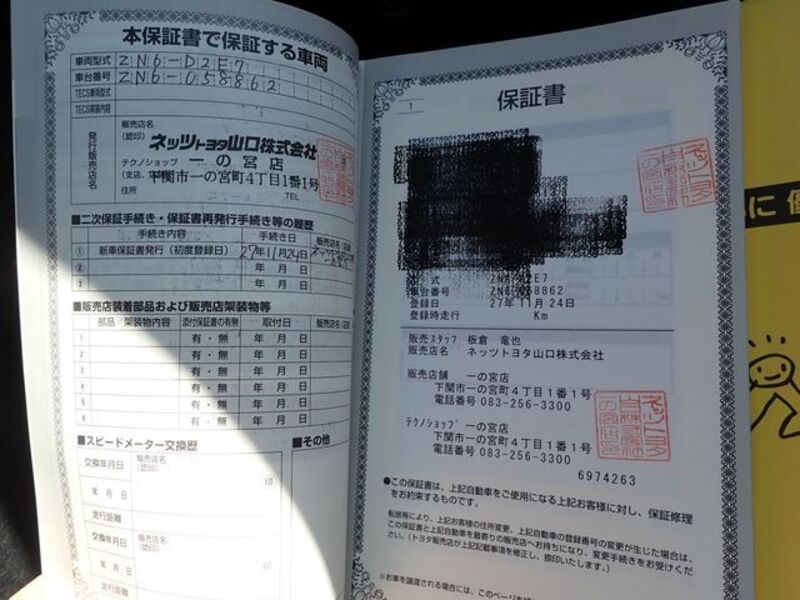 本保証書で保証する車両
車両型式 ZN6-D2E7
車台番号 ZN6-058862
TECS車両型式
TECS架装内容
発行販売店名
販売店名
(認印)
ネッツトヨタ山口株式会社
テクノショップ 一の宮店
(支店、
下関市一の宮町4丁目1番1号
住所
TEL
■二次保証手続き・保証書再発行手続き等の履歴
手続き内容 手続き日 販売店名
① 新車保証書発行(初度登録日) 27年11月24日
② 年 月 日
③ 年 月 日
■販売店装着部品および販売店架装物等
部品/架装物内容 添付保証書の有無 取付日 販売店名
1 有・無 年 月 日
2 有・無 年 月 日
3 有・無 年 月 日
4 有・無 年 月 日
5 有・無 年 月 日
6 有・無 年 月 日
■スピードメーター交換歴
■その他
交換年月日 販売店名
(認印)
年 月 日 印
走行距離
交換年月日 販売店名
(認印)
年 月 日
走行距離
1
保証書
ネッツトヨタ
式 E7
車台番号 ZN6 8862
登録日 27年 11月 24日
登録時走行 Km
販売スタッフ 板倉 竜也
販売店名 ネッツトヨタ山口株式会社
販売店舗 一の宮店
下関市一の宮町4丁目1番1号
電話番号 083-256-3300
テクノショップ 一の宮店
下関市一の宮町4丁目1番1号
電話番号 083-256-3300
ネッツトヨタ
6974263
●この保証書は、上記自動車をご使用になる上記お客様に対し、保証修理
をお約束するものです。
転居等により、上記お客様の住所変更、上記自動車の登録番号の変更が生じた場合は、
この保証書と上記自動車を最寄りの販売店へお持ちになり、変更手続きをお受けくだ
さい。(トヨタ販売店が上記記載事項を修正し、捺印いたします。)
※お車を譲渡される場合には、このページを
に